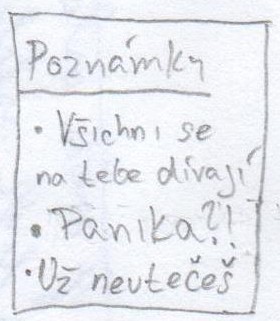 Poznámky
• Všichni se
na tebe dívají
• Panika?!
• Už neutečeš